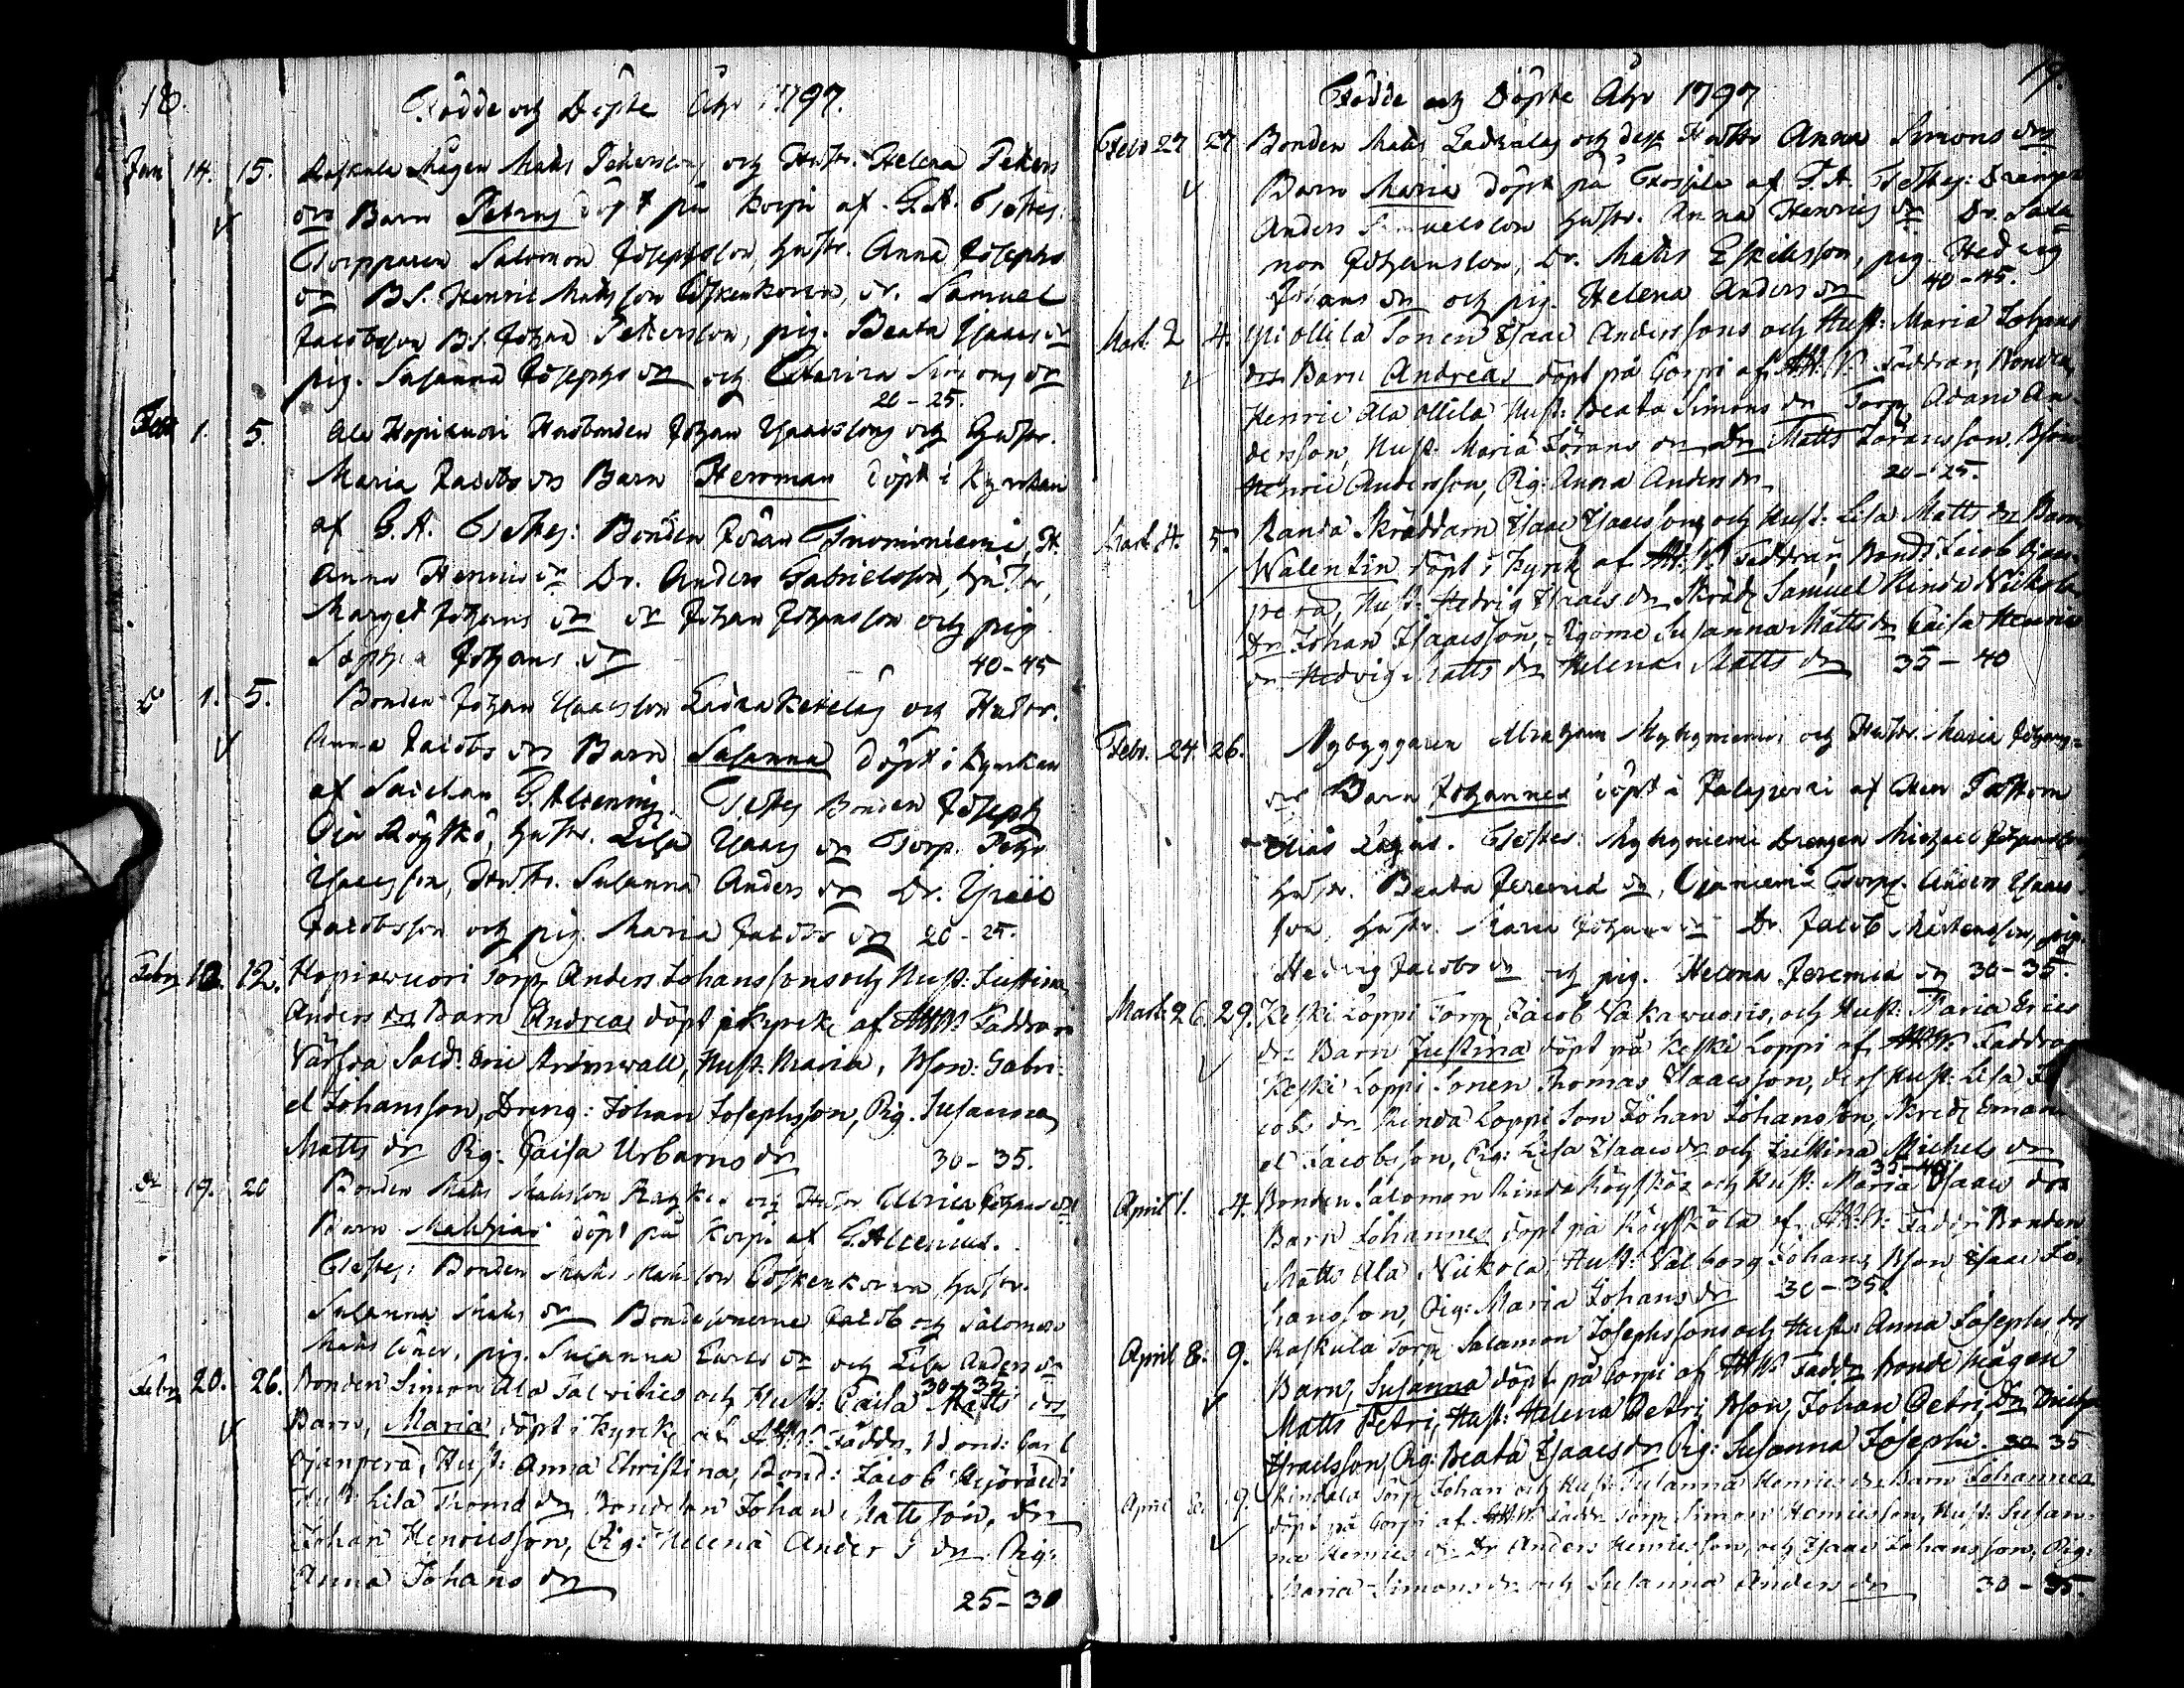 18.
Födde och Döpte Åhr 1797.
Jan 14. 15. Raskula Mågen Mats Petersons och Hustr. Helena Peters
drs Barn Petrus döpt på Korpi af G.A. Testes:
Torpparen Salomon Josephsson, hustr. Anna Josephs
dr BS. Henric Matsson Koskenkorva, dr. Samuel
Jacobsson BS. Johan Petersson, pig. Beata Isaacs dr
pig. Susanna Josephs dr och Caterina Simons dr
20-25.
Febr 1. 5. Ala Hopiavuori Husbonden Johan Isaacssons och Hustr.
Maria Jacobs drs Barn Herman döpt i Kyrckan
af G.A. Testes: Bonden Jöran Tuominiemi, H.
Anna Henrics dr Dr. Anders Gabrielsson, hustr.
Marget Johans dr dr Johan Johansson och pig
Sophia Johans dr 40-45
do 1. 5. Bonden Johan Isaacsson och Hustr.
Anna Jacobs drs Barn Susanna döpt i Kyrckan
af G. Alcenius. Testes Bonden Joseph
Oja Röyskö, hustr. Lisa Isaacs dr Torp. Petr
Isacsson, Hustr. Susanna Anders dr Dr.
Jacobsson och pig. Maria Jacobs dr 20-25.
Febr 12. 12. Hopiawuori Torp. Anders Johanssons och Hust: Justina
Anders drs Barn Andreas döpt i kyrck. af Faddrar
Sold. Eric Strömwall, Hust: Maria, Bson: Gabri-
el Johansson, Dreng: Johan Josephsson, Pig. Susanna
Matts dr Pig: Caisa Urbanus dr 30-35.
do 19. 20 Bonden Mats Matsson och Hustr Ulrica Johans drs
Barn Mathias döpt på Korpi af G. Alcenius.
Testes: Bonden Mats Matsson Koskenkorva, hustr.
Susanna Mats dr Bondesönerna Jacob och Salomon
Mats söner, pig. Susanna dr och Lisa Anders dr
30-35
Febr 20. 26. Bonden Simon Ala och Hust: Caisa Matts drs
Barn, Maria döpt i kyrck. af Faddr. Bond: Carl
Ojanperä, Hust: Anna Christina, Bond: Jacob
Hust: Lisa Thomæ dr Bondeson Johan Mattsson, dr
Johan Henricsson, Pig: Helena Anders dr Pig:
Anna Johans dr
25-30
19.
Födde och Döpte Åhr 1797
Febr 27 27 Bonden Mats och dess Hustr Anna Simons drs
Barn Maria döpt på af G.A. Testes: Drengen
Anders Samuelsson hustr. Anna Henrics dr Dr. Salo-
mon Johansson, Dr. Mats Eskilsson, pig. Hedvig
Johans dr och pig. Helena Anders dr 40-45.
Mart. 2 4. Yli Ollila Sonen Isaac Anderssons och Hust: Maria Johans
drs Barn Andreas döpt på Corpi af Faddrar, Bonden
Henric Ala Ollila Hust: Beata Simons dr Torp. Adam An-
dersson, Hust. Maria Jörans dr Dr Matts Jöransson. Bson
Henric Andersson, Pig: Anna Anders dr 20-25.
Mart. 4. 5. Randa Skräddarn Isaac Isaacssons och Hust: Lisa Matts drs Barn
Walentin döpt i kyrck. af Faddrar, Bond: Jacob Ojan-
perä, Hust: Hedvig Isaacs dr Skrädd. Samuel Rinda Nickola
Dr Johan Isaacsson, Pigorne Susanna Matts dr Caisa Henrics
dr Hedvig Matts dr Helena Matts dr 35-40
Febr. 24. 26. Nybyggaren Abraham Myhyniemi och Hustr. Maria Johans
drs Barn Johannes döpt i Jalasjerfvi af Herr Pastorn
Elias Lagus. Testes: Myhyniemi Drengen Michael Johansson
hustr. Beata Jeremiæ dr, Ojaniemi Torp. Anders Isaacs-
son, hustr. Maria Johans dr Dr. Jacob Mårtensson, pig
Hedvig Jacobs dr och pig. Helena Jeremiæ dr 30-35.
Mart. 26. 29. Keski Loppi Torp. Jacob Vakawuoris, och Hust: Maria Erics
drs Barn Justina döpt på Keski Loppi af Faddrar
Keski Loppi Sonen Thomas Isaacsson, dess Hust: Lisa Ja-
cobs dr Rinda Loppi Son Johan Johansson, Skrädd. Emanu-
el Jacobsson, Pig: Lisa Isaacs dr och Justina Michels dr
35-40
April 1. 4. Bonden Salomon Rinda Röyskös och Hust: Maria Isaacs drs
Barn Johannes döpt på Röysköla af Faddr. Bonden
Matts Ala Nickola, Hust: Valborg Johans, Bson, Isaac Jo-
hansson, Pig: Maria Johans dr 30-35.
April 8. 9. Raskula Torp. Salamon Josephssons och Hust: Anna Josephs drs
Barn, Susanna döpt på Corpi af Faddr bonde Mågen
Matts Petri, Hust: Helena Petri, Bson, Johan Petri, Dr
Israelsson, Pig: Beata Isaacs dr Pig: Susanna Josephi. 30 35
April 8. 9. Rindala Torp. Johan och Hust: Susanna Henrics drs Barn Johannes
döpt på Corpi af Faddr Torp. Simon Henricsson, Hust: Susan-
na Henrics dr Dr Anders Henricsson, och Isaac Johansson, Pig:
Maria Simons dr och Susanna Anders dr 30-35.